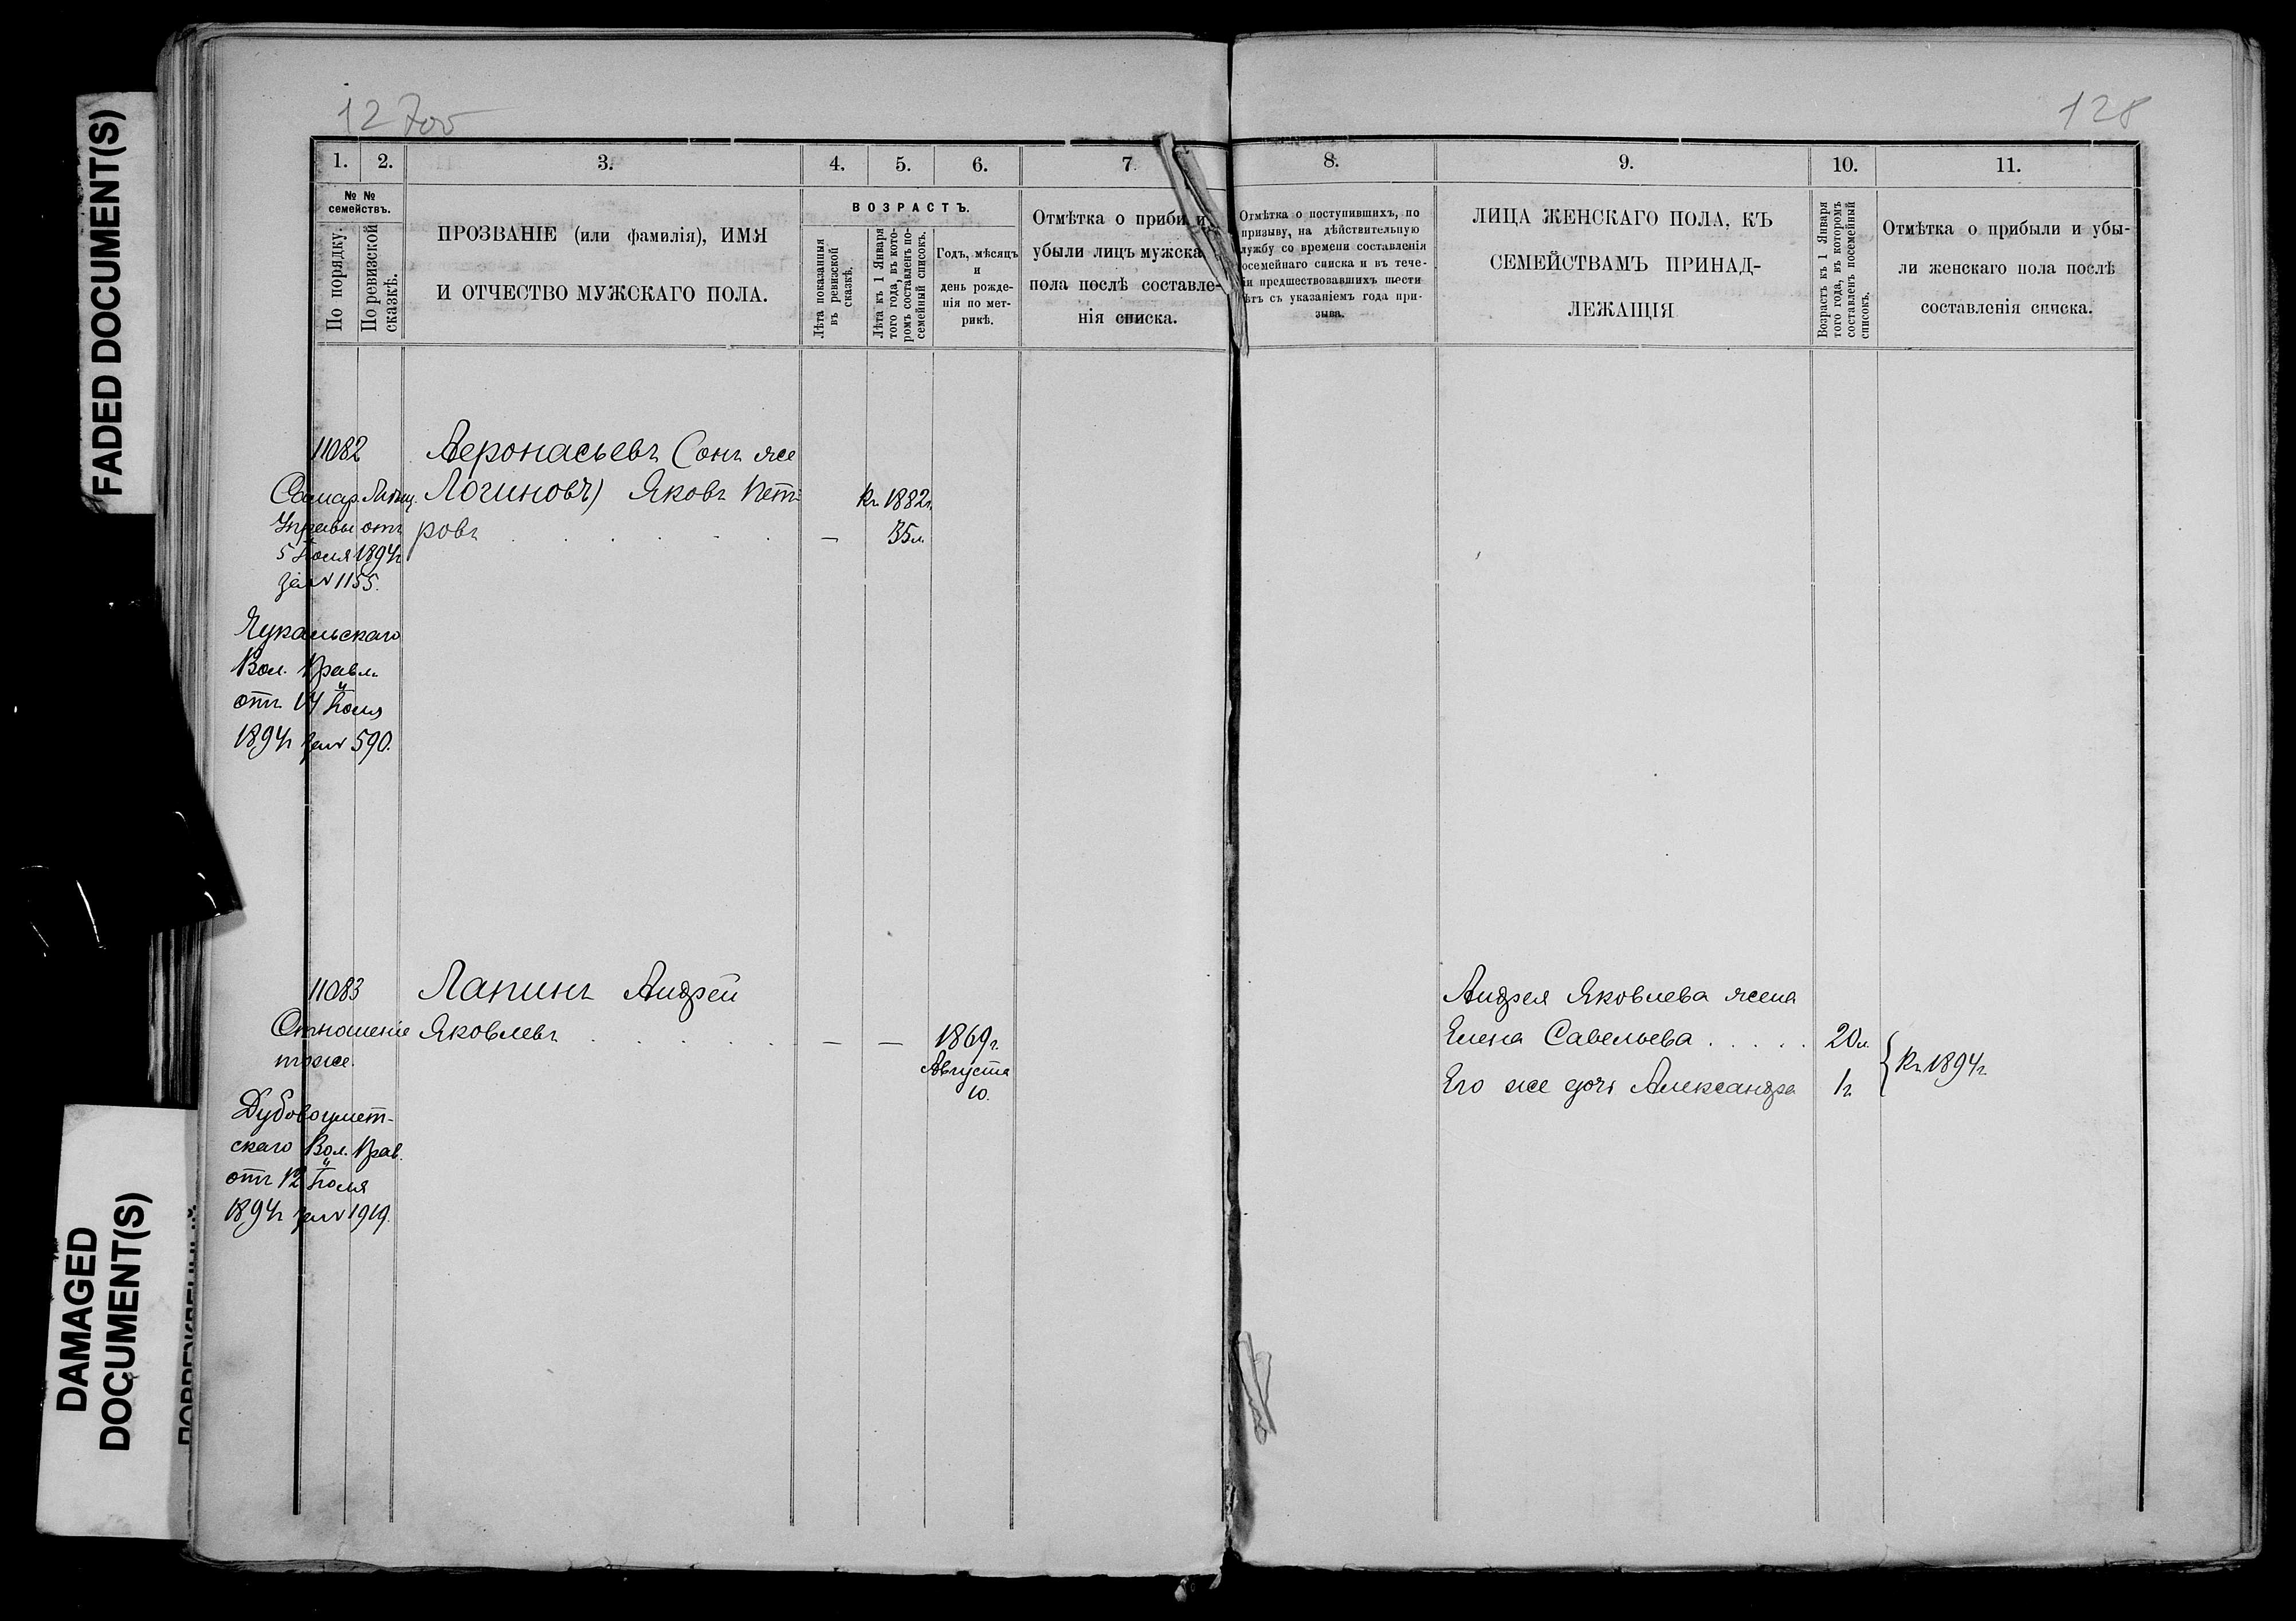 FADED DOCUMENT(S)
DAMAGED
DOCUMENT(S)
127об
128
1.
2.
3.
4.
5.
6.
7.
8.
9.
10.
11.
№ №
семействъ.
По порядку.
По ревизской
сказкѣ.
ПРОЗВАНІЕ (или фамилія), ИМЯ
И ОТЧЕСТВО МУЖСКАГО ПОЛА.
ВОЗРАСТЪ.
Лѣта показанныя
въ ревизской
сказкѣ.
Лѣта къ 1 Января
того года, въ кото-
ромъ составленъ по-
семейный списокъ.
Годъ, мѣсяцъ
и
день рожде-
нія по мет-
рикѣ.
Отмѣтка о приби и
убыли лицъ мужска
пола послѣ составле-
нія списка.
Отмѣтка о поступившихъ, по
призыву, на дѣйствительную
лужбу со времени составленія
осемейнаго списка и въ тече-
іи предшествовавшихъ шести
ѣтъ съ указаніемъ года при-
зыва.
ЛИЦА ЖЕНСКАГО ПОЛА, КЪ
СЕМЕЙСТВАМЪ ПРИНАД-
ЛЕЖАЩІЯ
Возрастъ къ 1 Января
того года, въ которомъ
составленъ посемейный
списокъ.
Отмѣтка о прибыли и убы-
ли женскаго пола послѣ
составленія списка.
11082
Афонасьевъ (онъ же
Самар. Мѣщ. Логиновъ) Яковъ Пет-
къ 1882г.
Управы отъ ровъ . . . . . . — 35л.
5 Іюля 1894г
за № 1155.
Чукальскаго
Вол. Правл.
отъ 14 Іюля
1894г за № 590.
11083 Лапинъ Андрей
Отношеніе Яковлевъ . . . . . — — 1869г.
тоже. Августа
10.
Дубовоумет-
скаго Вол. Прав.
отъ 12 Іюля
1894г за № 1919.
Андрея Яковлева жена
Елена Савельева . . . . . 20л.
Его же дочь Александра 1г.
къ 1894г.